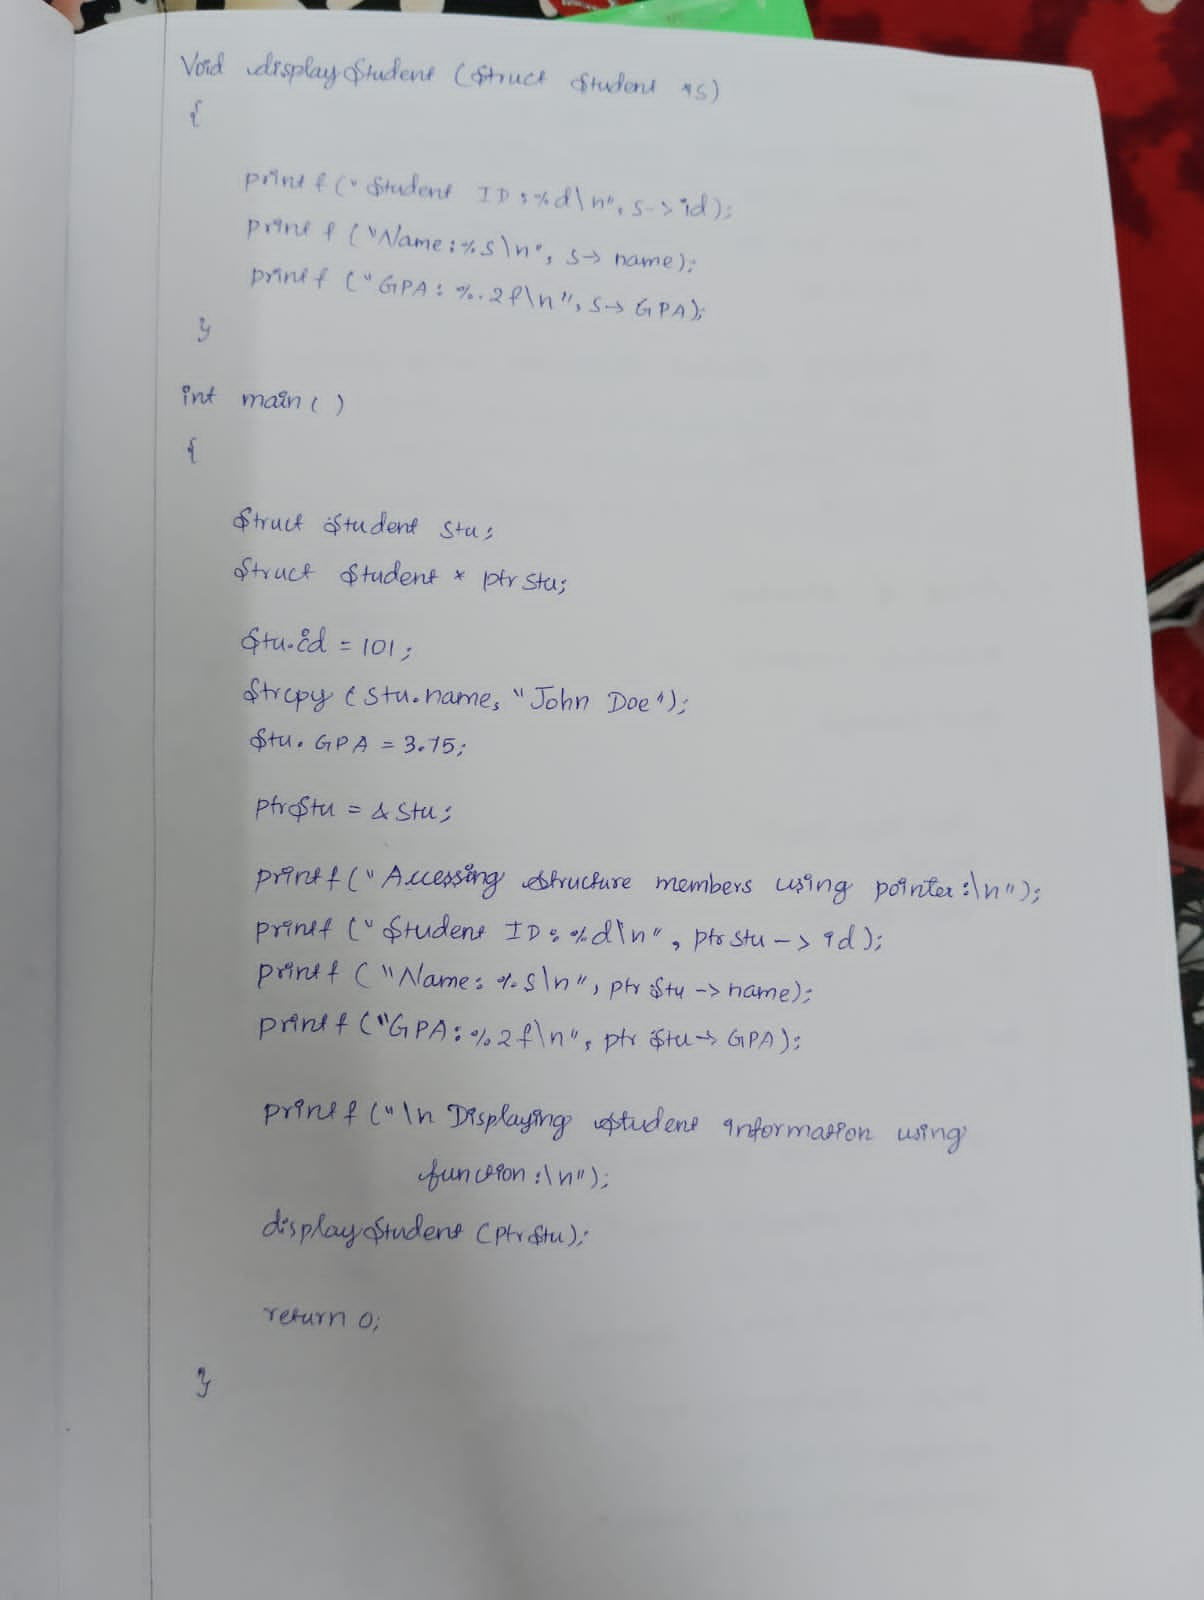 Void displayStudent (Struct Student *s)
{
printf ("Student ID:%d\n", s->id);
printf ("Name:%s\n", s->name);
printf ("GPA: %.2f\n", s->GPA);
}
int main()
{
Struct Student stu;
Struct Student * ptrStu;
Stu.id = 101;
Strcpy (stu.name, "John Doe");
Stu.GPA = 3.75;
ptrStu = &stu;
printf ("Accessing structure members using pointer:\n");
printf ("Student ID: %d\n", ptrstu -> id);
printf ("Name: %s\n", ptrStu -> name);
printf ("GPA: %2f\n", ptrStu -> GPA);
printf ("\n Displaying student information using
function:\n");
displayStudent (ptrStu);
return 0;
}